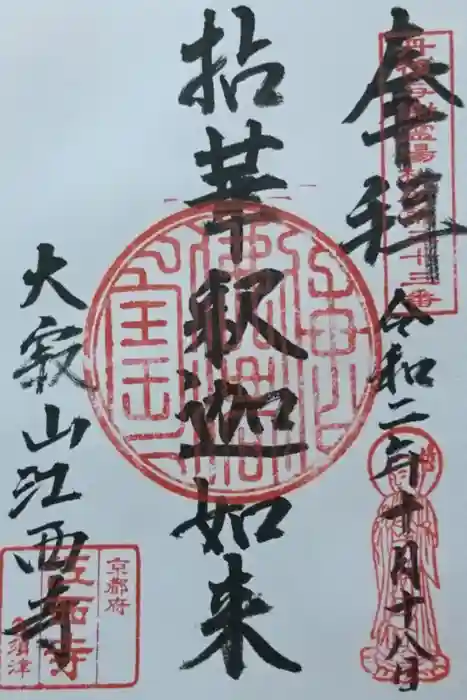 奉拝
令和二年十月十八日
拈華釈迦如来
大寂山江西寺
京都府
江西寺
須津